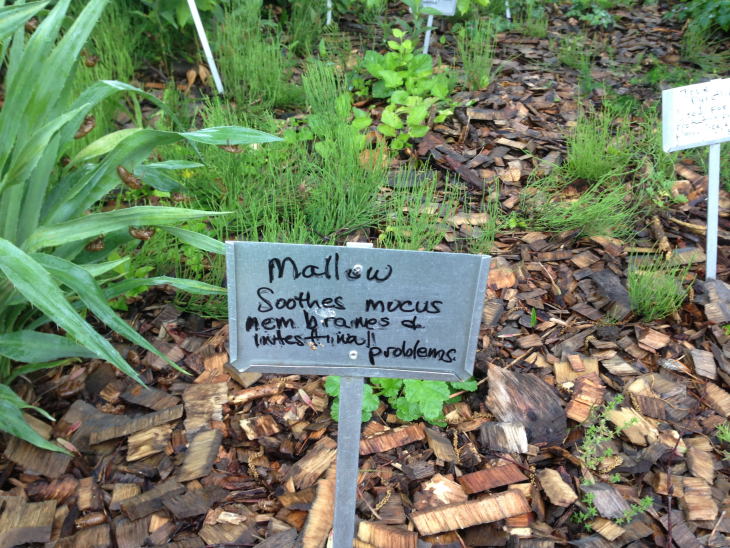 Mallow
Soothes mucus
mem branes &
intestinall
problems.